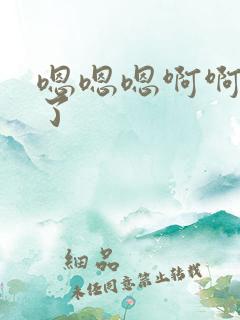 嗯嗯嗯啊啊
了
細品
未经同意禁止转载